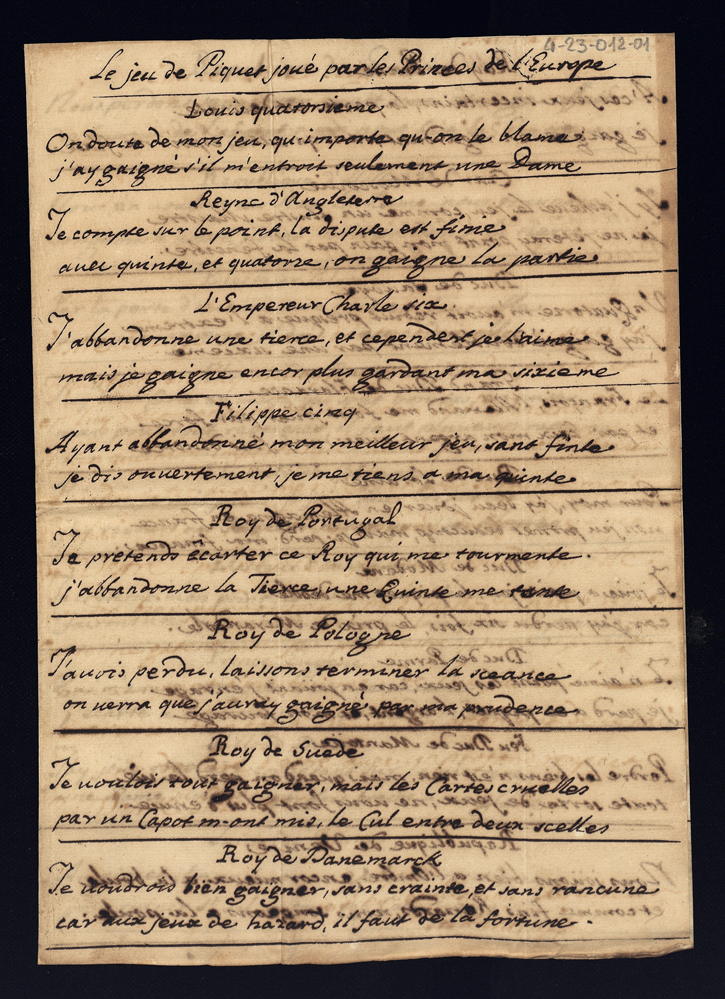 4-23-012-01
Le jeu de Piquet joué par les Princes de l'Europe
Louis quatorsieme
On doute de mon jeu, qu'importe qu'on le blame
j'ay gaigné s'il m'entroit seulement une Dame
Reyne d'Angleterre
Je compte sur le point, la dispute est finie
avec quinte, et quatorze, on gaigne la partie
L'Empereur Charle six
J'abbandonne une tierce, et cependent je l'aime
mais je gaigne encor plus gardant ma sixieme
Filippe cinq
Ayant abbandonné mon meilleur jeu, sans finte
je dis ouvertement, je me tiens a ma quinte
Roy de Portugal
Je pretends ecarter ce Roy qui me tourmente.
j'abbandonne la Tierce, une Quinte me tente
Roy de Pologne
J'avois perdu, laissons terminer la sceance
on verra que j'auray gaigné par ma prudence
Roy de Suede
Je voulois tout gaigner, mais les Cartes cruelles
par un Capot m'ont mis, le Cul entre deux scelles
Roy de Danemarck
Je voudrois bien gaigner, sans crainte, et sans rancune
car aux jeux de hazard, il faut de la fortune.